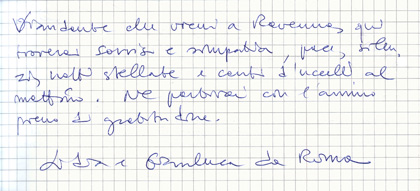 Viandante che vieni a Ravenna, qui
troverai sorrisi e simpatia, pace, silen
zi, notti stellate e canti d'uccelli al
mattino. Ne partirai con l'animo
pieno di gratitudine.
e Gianluca da Roma